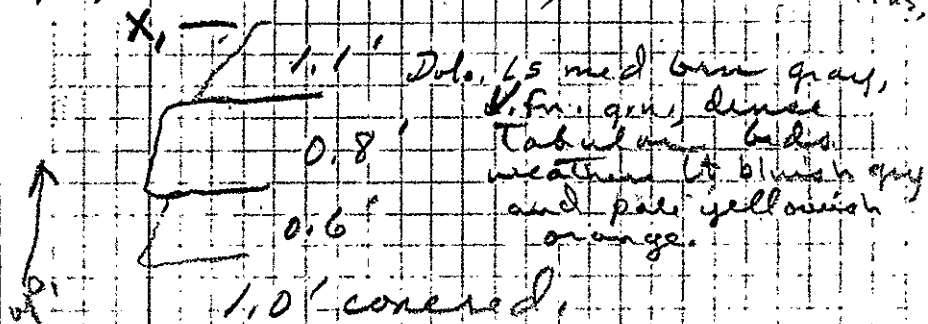 X,
1.1' Dolo. Ls med brn gray,
V. fn. grn, dense
0.8' Tabular beds
weathers lt bluish gry
0.6' and pale yellowish
orange.
1.0' covered,